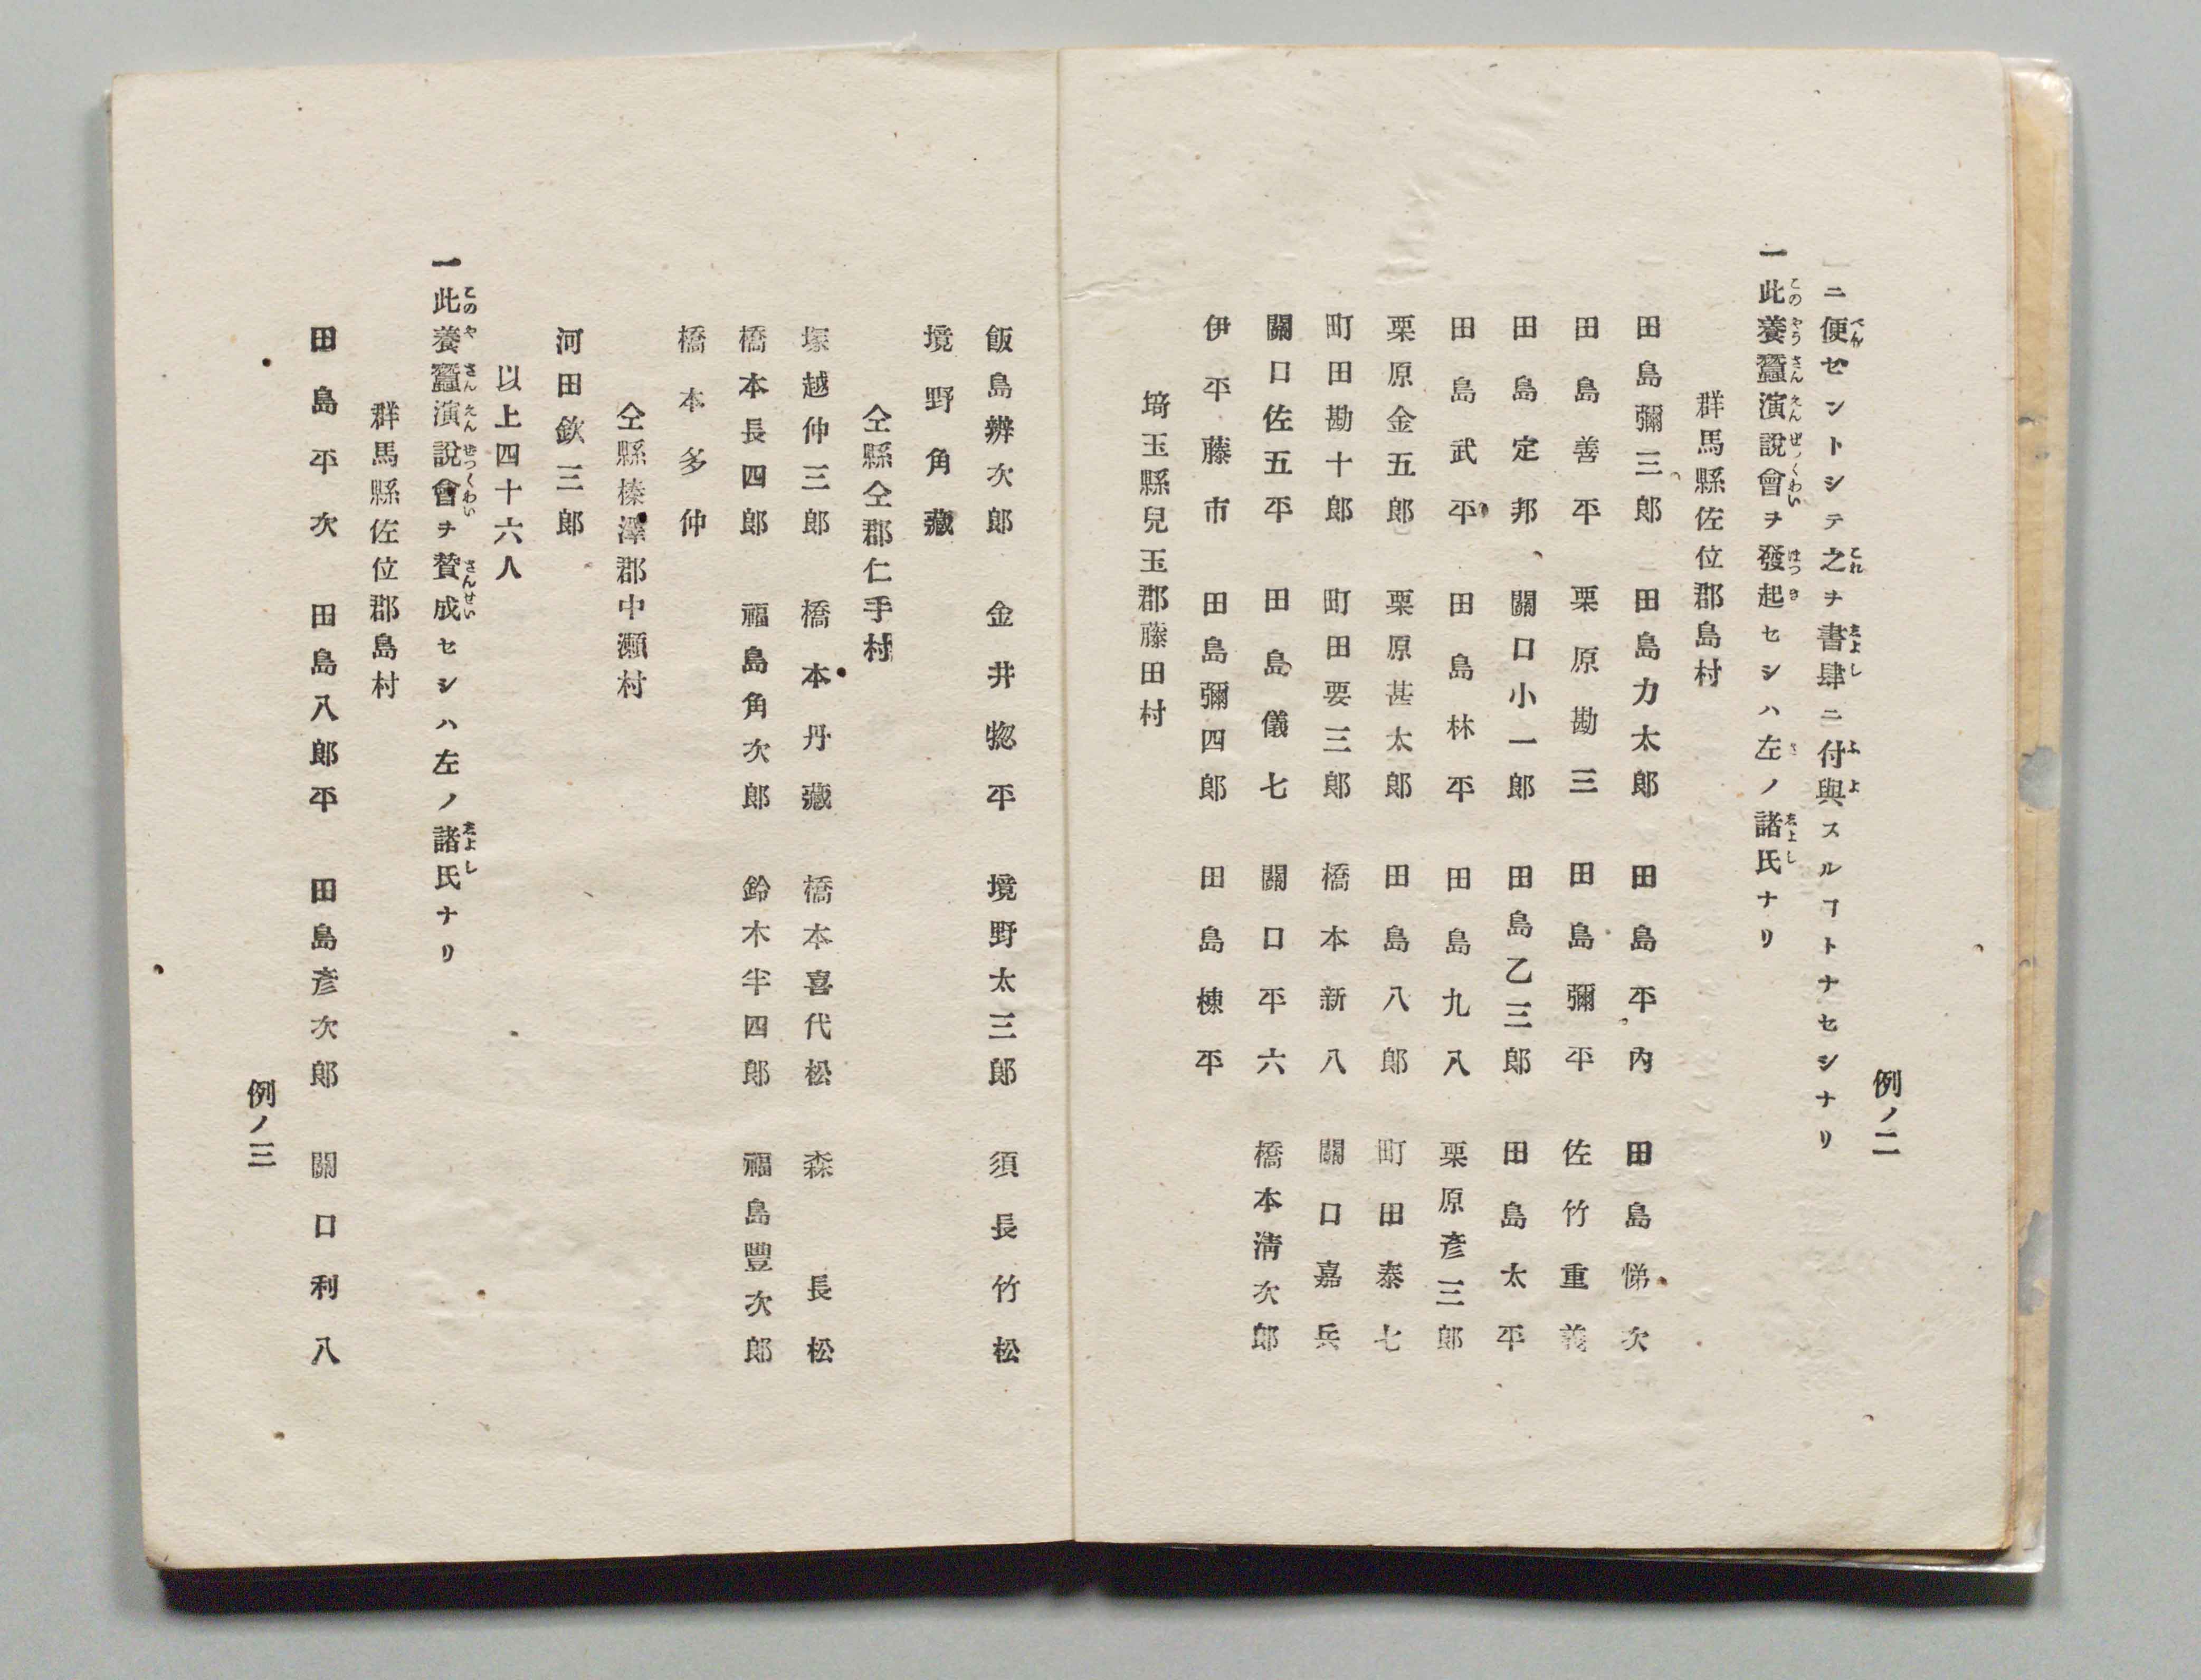 例ノ二
ニ便センドシテ之ヲ書肆ニ付與スルヿトナセシナリ
一此養蠶演說會ヲ發起セシハ左ノ諸氏ナリ
群馬縣佐位郡島村
田島彌三郎 田島力太郎 田島平內 田島悌次
田島善平 栗原勘三 田島彌平 佐竹重義
田島定邦 關口小一郎 田島乙三郎 田島太平
田島武平 田島林平 田島九八 栗原彥三郎
栗原金五郎 栗原甚太郎 田島八郎 町田泰七
町田勘十郎 町田要三郎 橋本新八 關口嘉兵
關口佐五平 田島儀七 關口平六 橋本淸次郎
伊平藤市 田島彌四郎 田島棟平
埼玉縣兒玉郡藤田村
飯島辨次郎 金井惣平 境野太三郎 須長竹松
境野角藏
仝縣仝郡仁手村
塚越仲三郎 橋本丹藏 橋本喜代松 森長松
橋本長四郎 福島角次郎 鈴木半四郎 福島豐次郎
橋本多仲
仝縣榛澤郡中瀬村
河田欽三郎
以上四十六人
一此養蠶演說會ヲ贊成セシハ左ノ諸氏ナリ
群馬縣佐位郡島村
田島平次 田島八郎平 田島彥次郎 關口利八
例ノ三